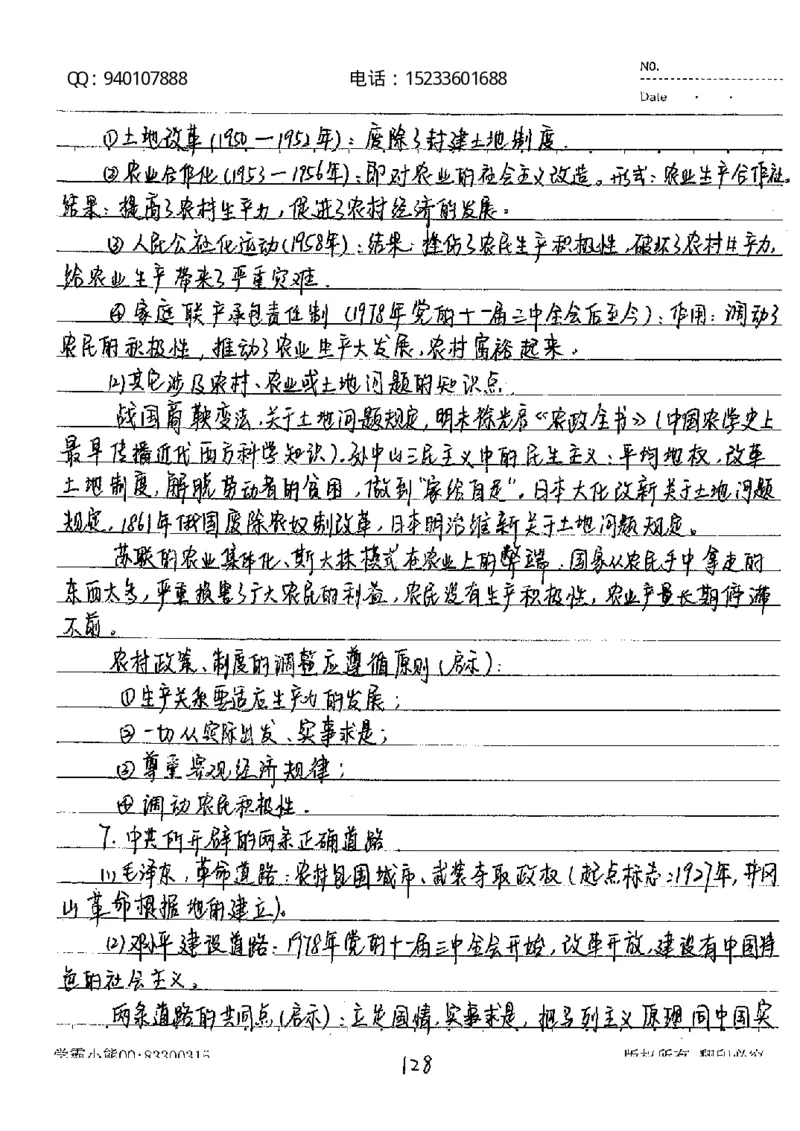 QQ：940107888 电话：15233601688 NO.
Date
①土地改革(1950—1952年)：废除了封建土地制度.
②农业合作化(1953—1956年)：即对农业的社会主义改造。形式：农业生产合作社。
结果：提高了农村生产力，促进了农村经济的发展。
③人民公社化运动(1958年)：结果：挫伤了农民生产积极性，破坏了农村生产力，
给农业生产带来了严重灾难.
④家庭联产承包责任制（1978年党的十一届三中全会后至今）：作用：调动了
农民的积极性，推动了农业生产大发展，农村富裕起来。
(2)其它涉及农村、农业或土地问题的知识点.
战国商鞅变法，关于土地问题规定，明末徐光启《农政全书》(中国农学史上
最早传播近代西方科学知识).孙中山三民主义中的民生主义：平均地权，改革
土地制度，解脱劳动者的贫困，做到“家给自足”。日本大化改新关于土地问题
规定，1861年俄国废除农奴制改革，日本明治维新关于土地问题规定。
苏联的农业集体化、斯大林模式在农业上的弊端：国家从农民手中拿走的
东西太多，严重损害了广大农民的利益，农民没有生产积极性，农业产量长期停滞
不前。
农村政策、制度的调整应遵循原则(启示)：
①生产关系要适应生产力的发展；
②一切从实际出发、实事求是；
③尊重客观经济规律；
④调动农民积极性.
7. 中共所开辟的两条正确道路
(1)毛泽东，革命道路：农村包围城市、武装夺取政权(起点标志：1927年，井冈
山革命根据地的建立)。
(2)邓小平建设道路：1978年党的十一届三中全会开始，改革开放，建设有中国特
色的社会主义。
两条道路的共同点(启示)：立足国情，实事求是，把马列主义原理同中国实
学霸小熊QQ:83300315 版权所有 翻印必究
128